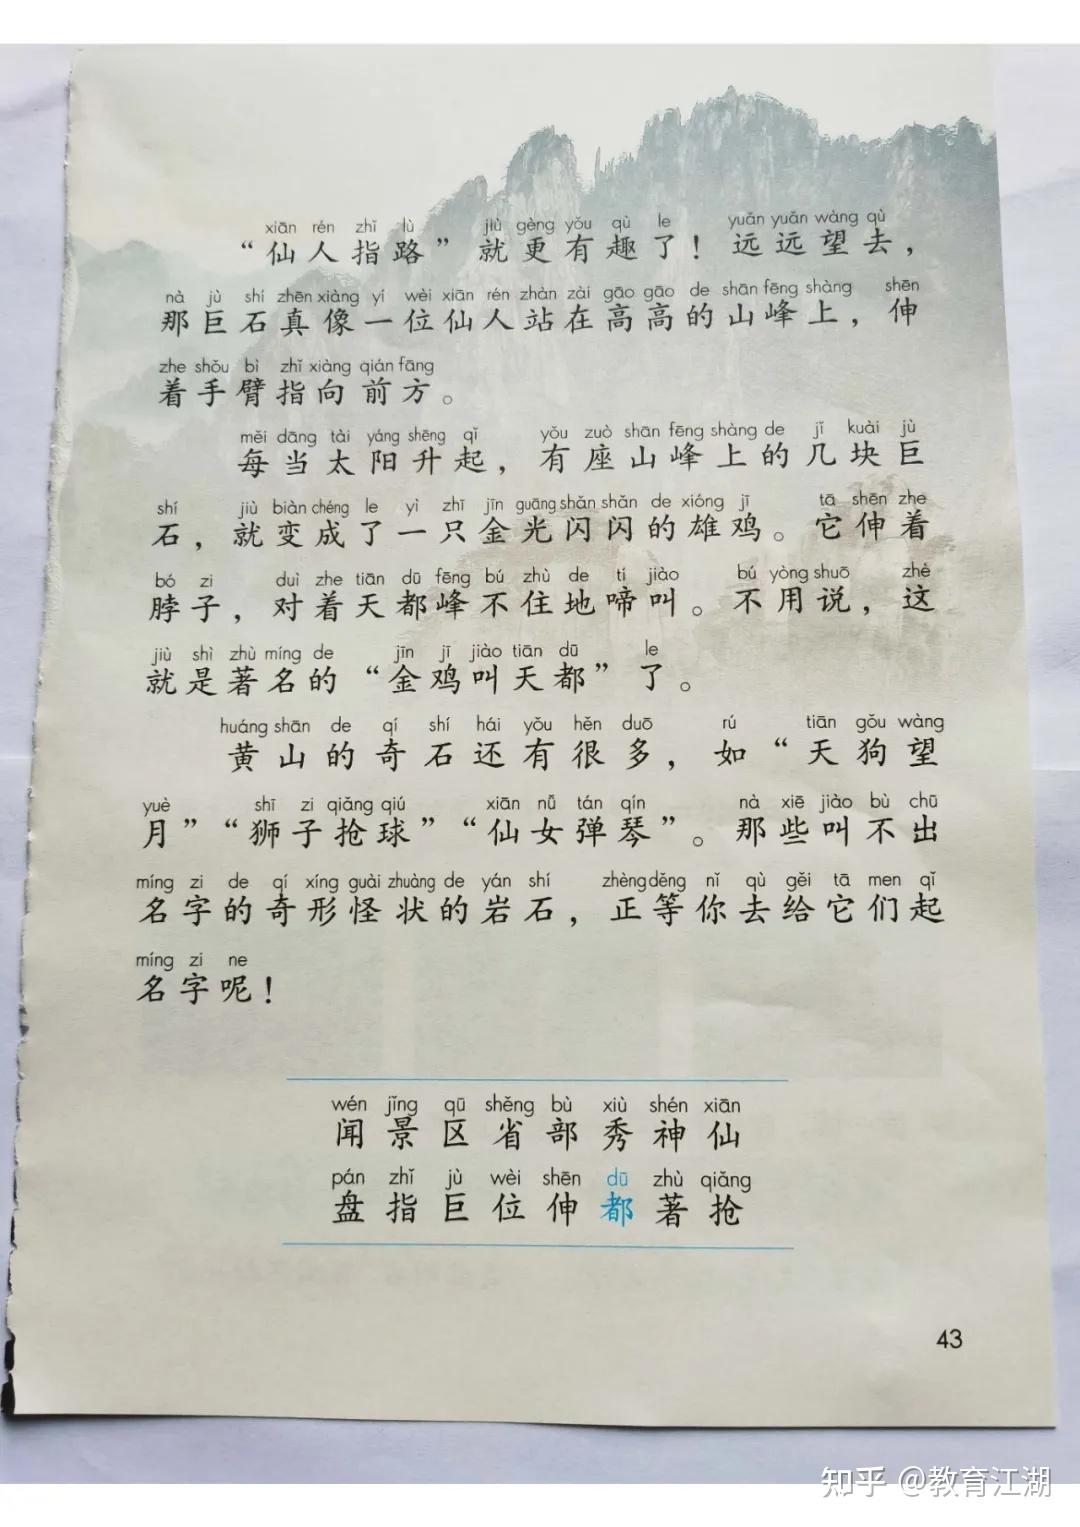 xiān rén zhǐ lù jiù gèng yǒu qù le yuǎn yuǎn wàng qù
“仙人指路”就更有趣了！远远望去，
nà jù shí zhēn xiàng yí wèi xiān rén zhàn zài gāo gāo de shān fēng shàng shēn
那巨石真像一位仙人站在高高的山峰上，伸
zhe shǒu bì zhǐ xiàng qián fāng
着手臂指向前方。
měi dāng tài yáng shēng qǐ yǒu zuò shān fēng shàng de jǐ kuài jù
每当太阳升起，有座山峰上的几块巨
shí jiù biàn chéng le yì zhī jīn guāng shǎn shǎn de xióng jī tā shēn zhe
石，就变成了一只金光闪闪的雄鸡。它伸着
bó zi duì zhe tiān dū fēng bú zhù de tí jiào bú yòng shuō zhè
脖子，对着天都峰不住地啼叫。不用说，这
jiù shì zhù míng de jīn jī jiào tiān dū le
就是著名的“金鸡叫天都”了。
huáng shān de qí shí hái yǒu hěn duō rú tiān gǒu wàng
黄山的奇石还有很多，如“天狗望
yuè shī zi qiǎng qiú xiān nǚ tán qín nà xiē jiào bù chū
月”“狮子抢球”“仙女弹琴”。那些叫不出
míng zi de qí xíng guài zhuàng de yán shí zhèng děng nǐ qù gěi tā men qǐ
名字的奇形怪状的岩石，正等你去给它们起
míng zi ne
名字呢！
wén jǐng qū shěng bù xiù shén xiān
闻景区省部秀神仙
pán zhǐ jù wèi shēn dū zhù qiǎng
盘指巨位伸都著抢
43
知乎 @教育江湖